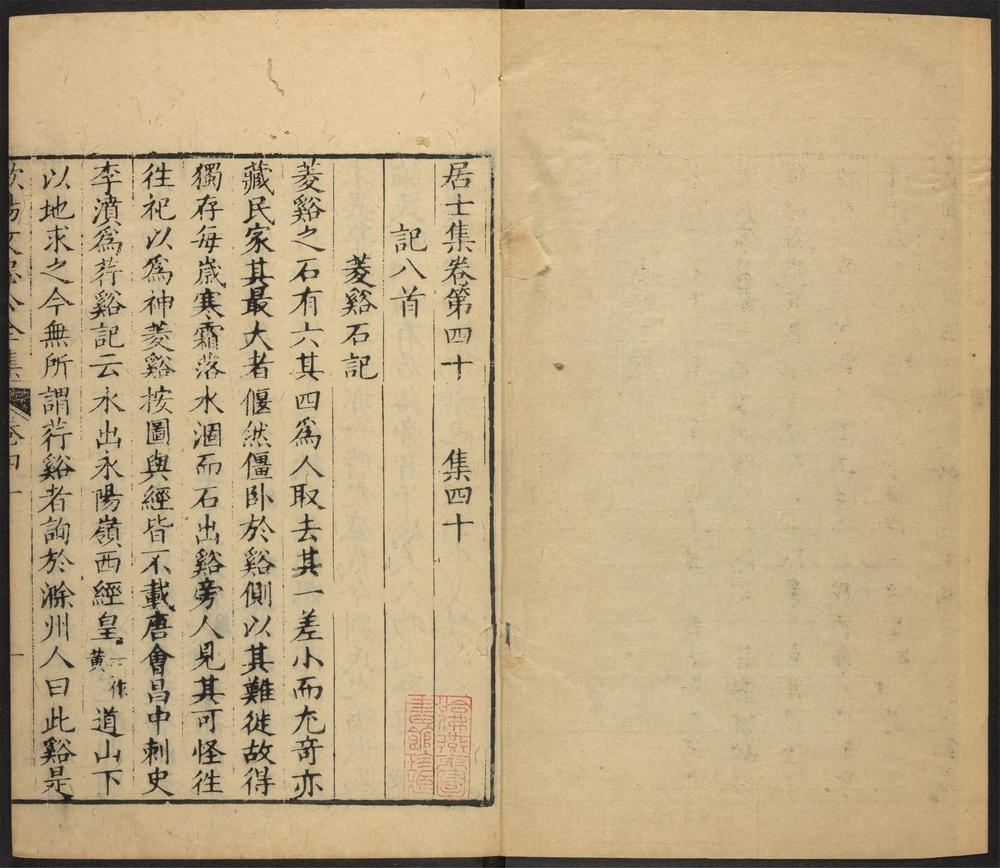 居士集卷第四十　集四十
記八首
菱谿石記
菱谿之石有六其四爲人取去其一差小而尤奇亦
藏民家其最大者偃然僵卧於谿側以其難徙故得
獨存每歲寒霜落水涸而石出谿旁人見其可怪徃
徃祀以爲神菱谿按圖與經皆不載唐會昌中刺史
李濆爲荇谿記云水出永陽嶺西經皇一作黃道山下
以地求之今無所謂荇谿者詢於滁州人曰此谿是
歐陽文忠公全集 卷四十 一
哈佛燕京圖書館珍藏